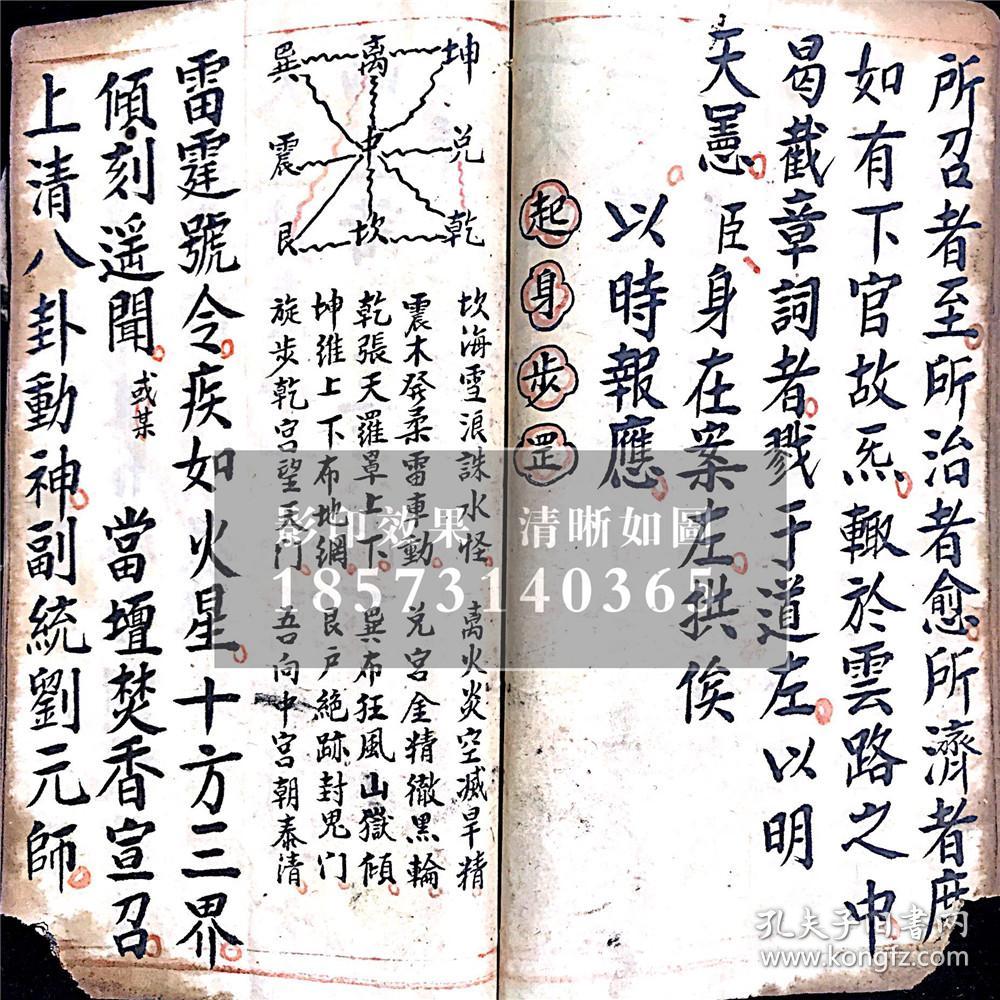 所召者至。所治者愈。所濟者度
如有下官故炁。輙於雲路之中。
曷截章詞者。戮于道左。以明
天憲。臣身在案左拱俟
以時報應。
起身步罡
巽 離 坤
震 中 兌
艮 坎 乾
坎海雪浪誅水怪 离火炎空滅旱精
震木發柔雷車動。兌宮金精徹黑輪
乾張天羅罩上下。巽布狂風山獄傾。
坤維上下布地網。艮户絕跡封鬼门
旋步乾宮望天門。吾向中宮朝泰清。
雷霆號令。疾如火星。十方三界。
傾刻遥聞。或某 當壇焚香宣召。
上清八卦動神。副統劉元師。
影印效果 清晰如圖
18573140365
孔夫子旧书网
www.kongfz.com